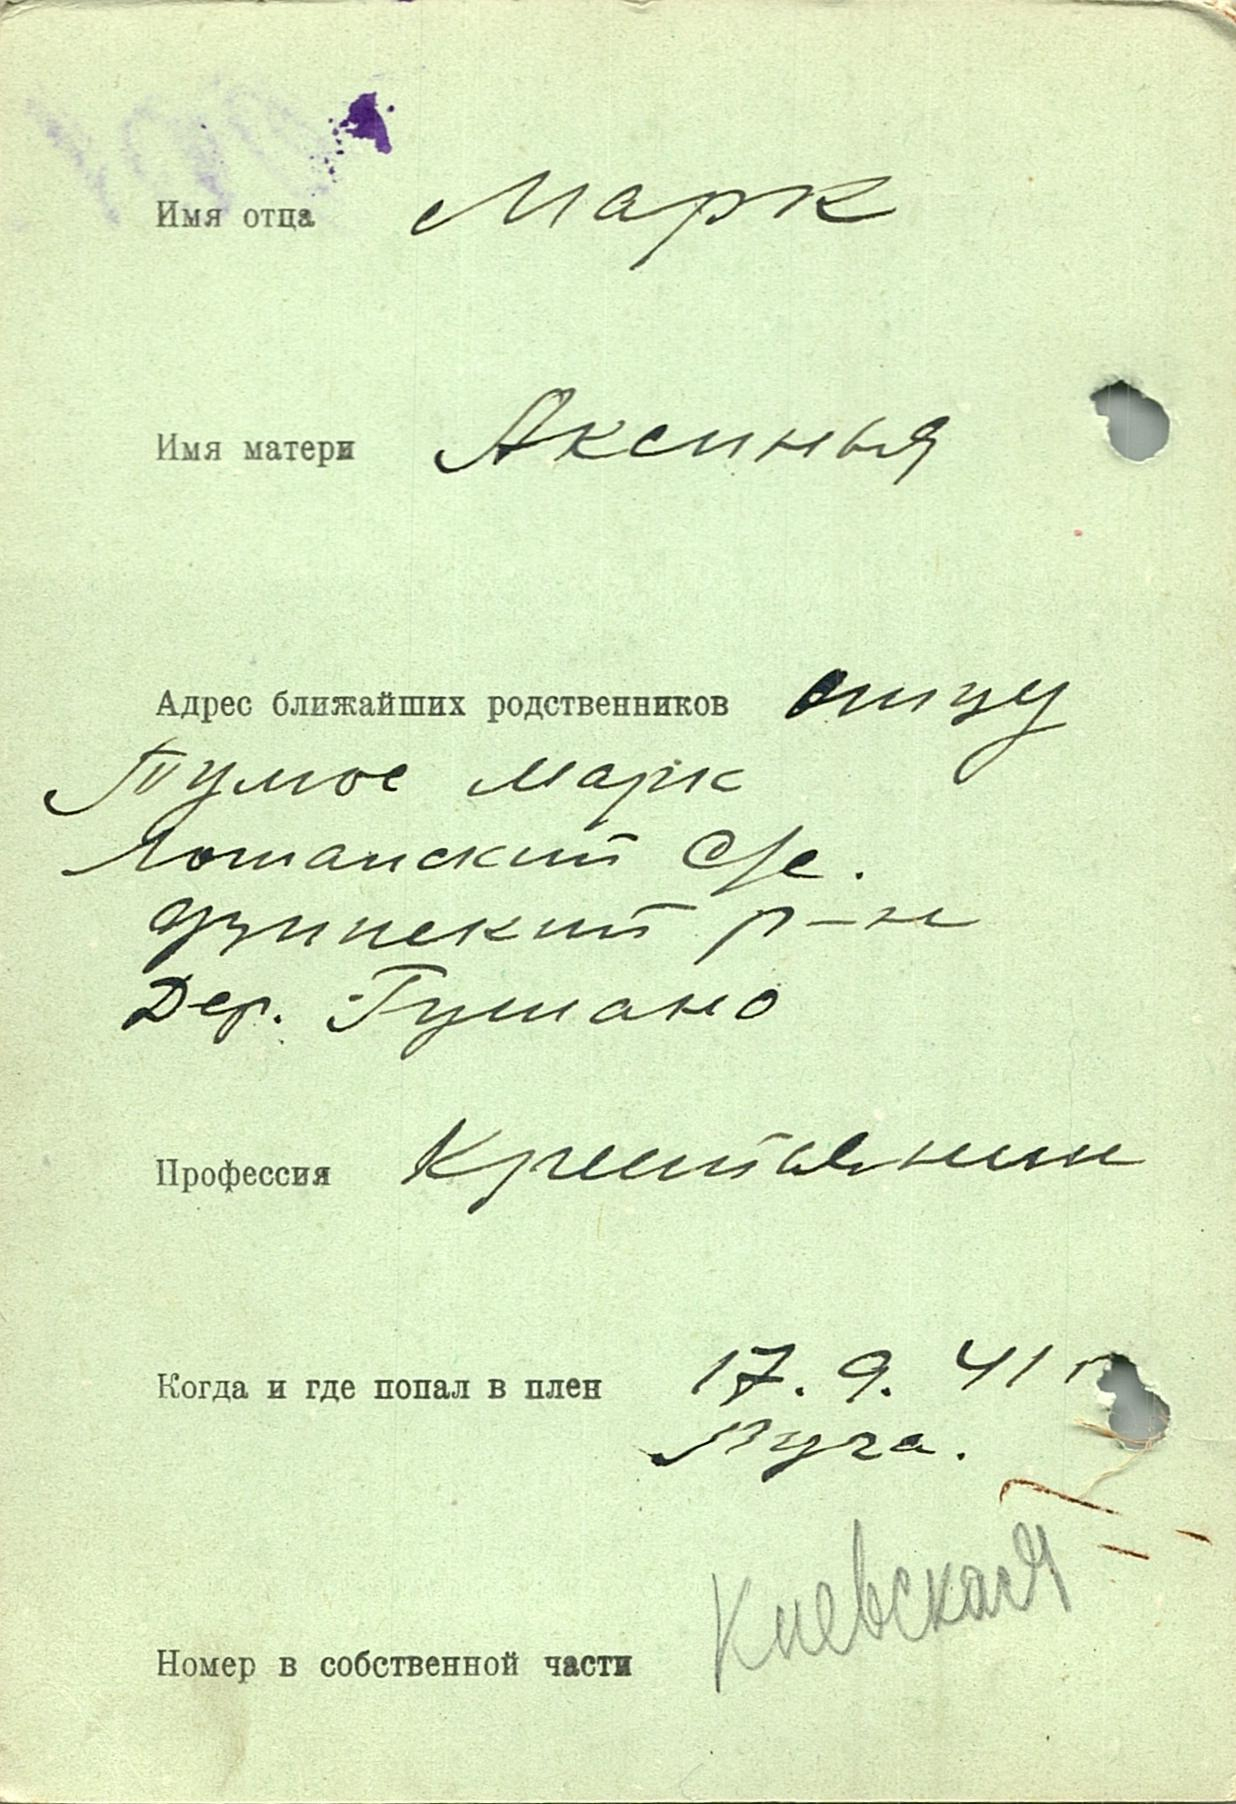 Имя отца Марк
Имя матери Аксинья
Адрес ближайших родственников отцу
Марк
С/с.
р-н
Дер. Гушано
Профессия Крестьянин
Когда и где попал в плен 17. 9. 41 г
Луга.
Киевская
Номер в собственной части